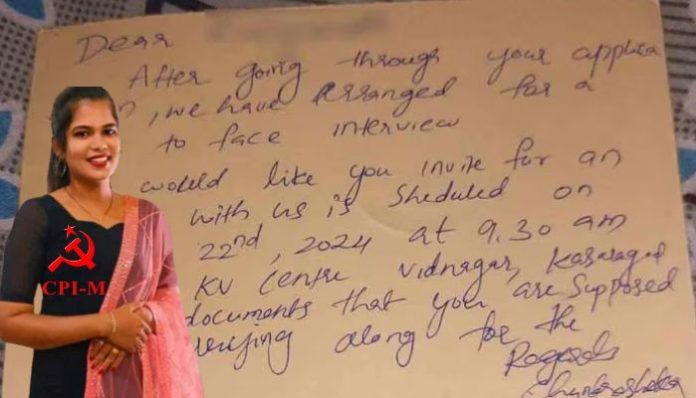 Dear
After going through your applica
n, we have Arranged for a
to face interview
would like you invite for an
with us is Sheduled on
22nd, 2024 at 9.30 am
KV Centre Vidnagar, Kasaragod
documents that you are supposed
along for the
Regards
CPI-M